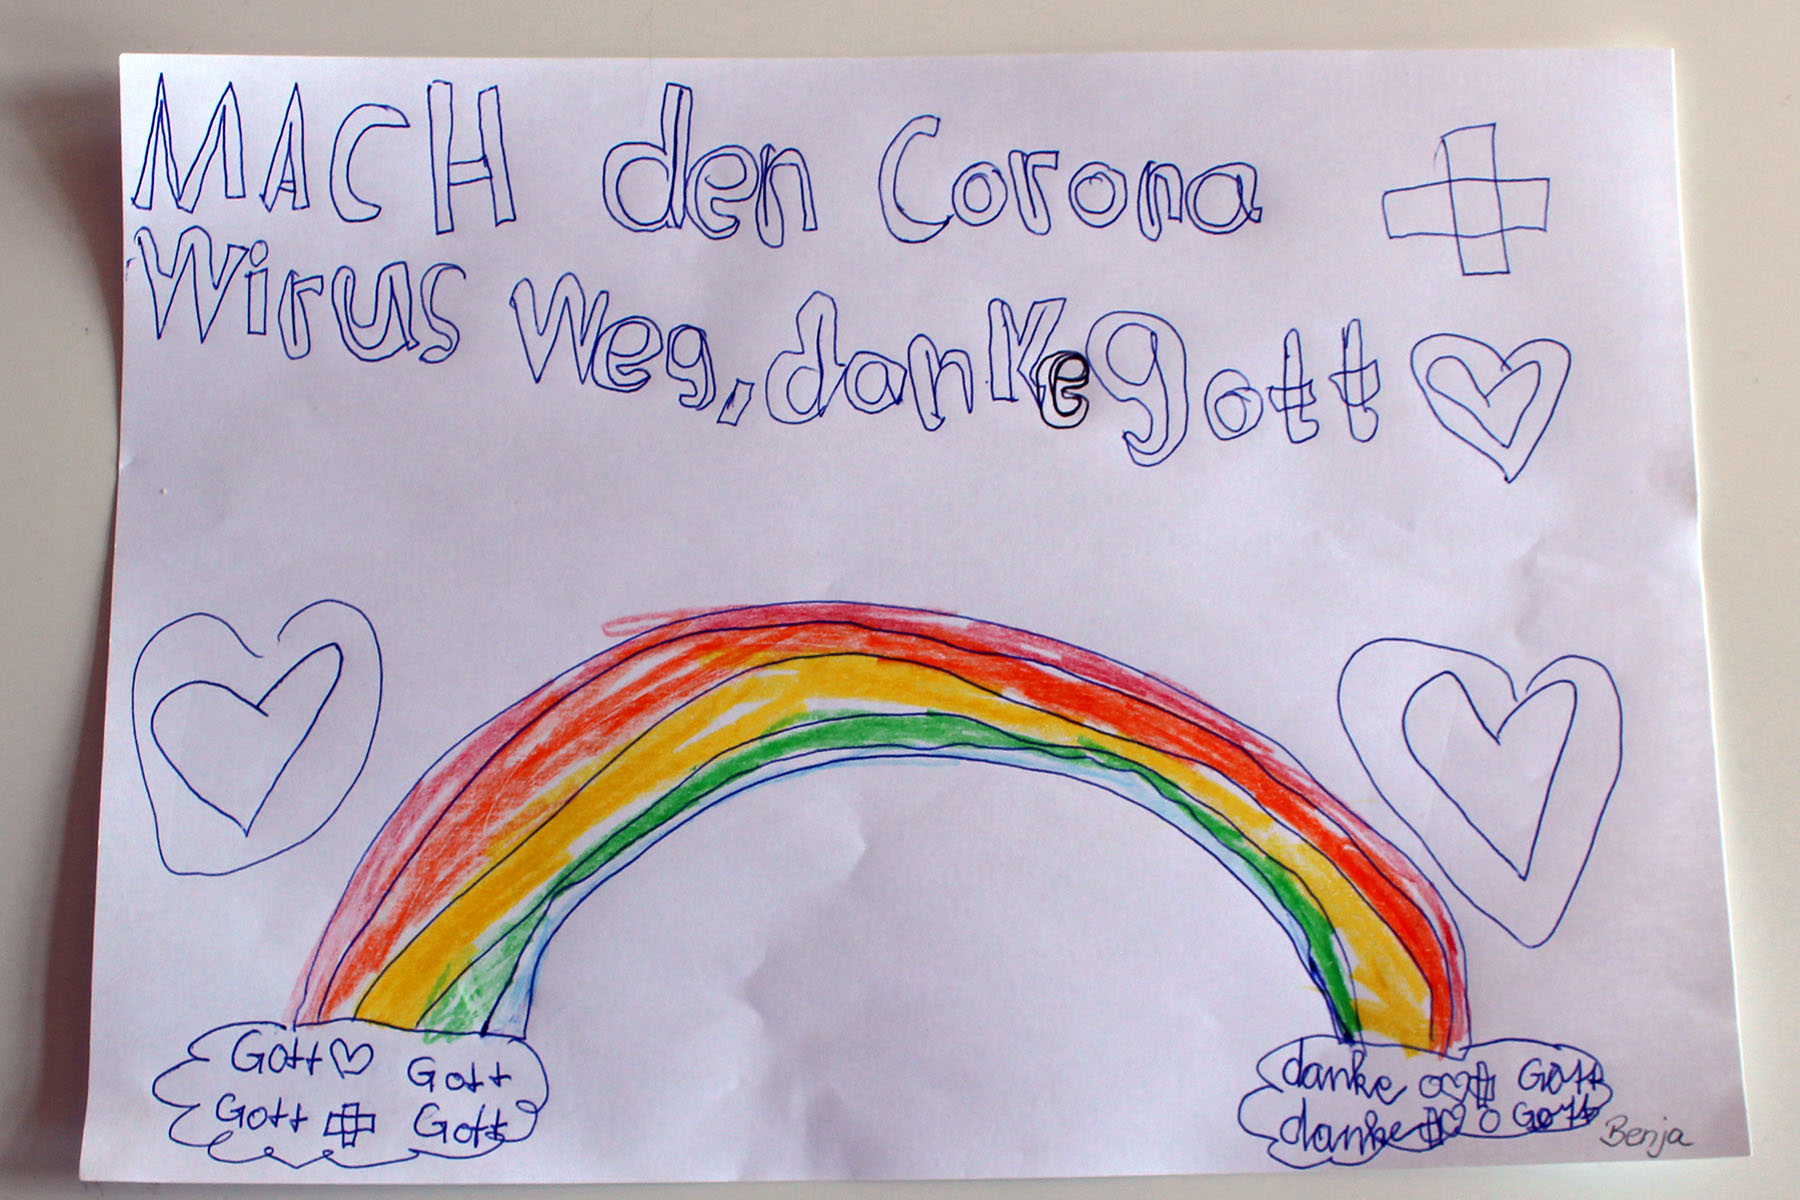 MACH den Corona
Wirus Weg, danke gott
Gott Gott
Gott Gott
danke Gott
danke Gott
Benja